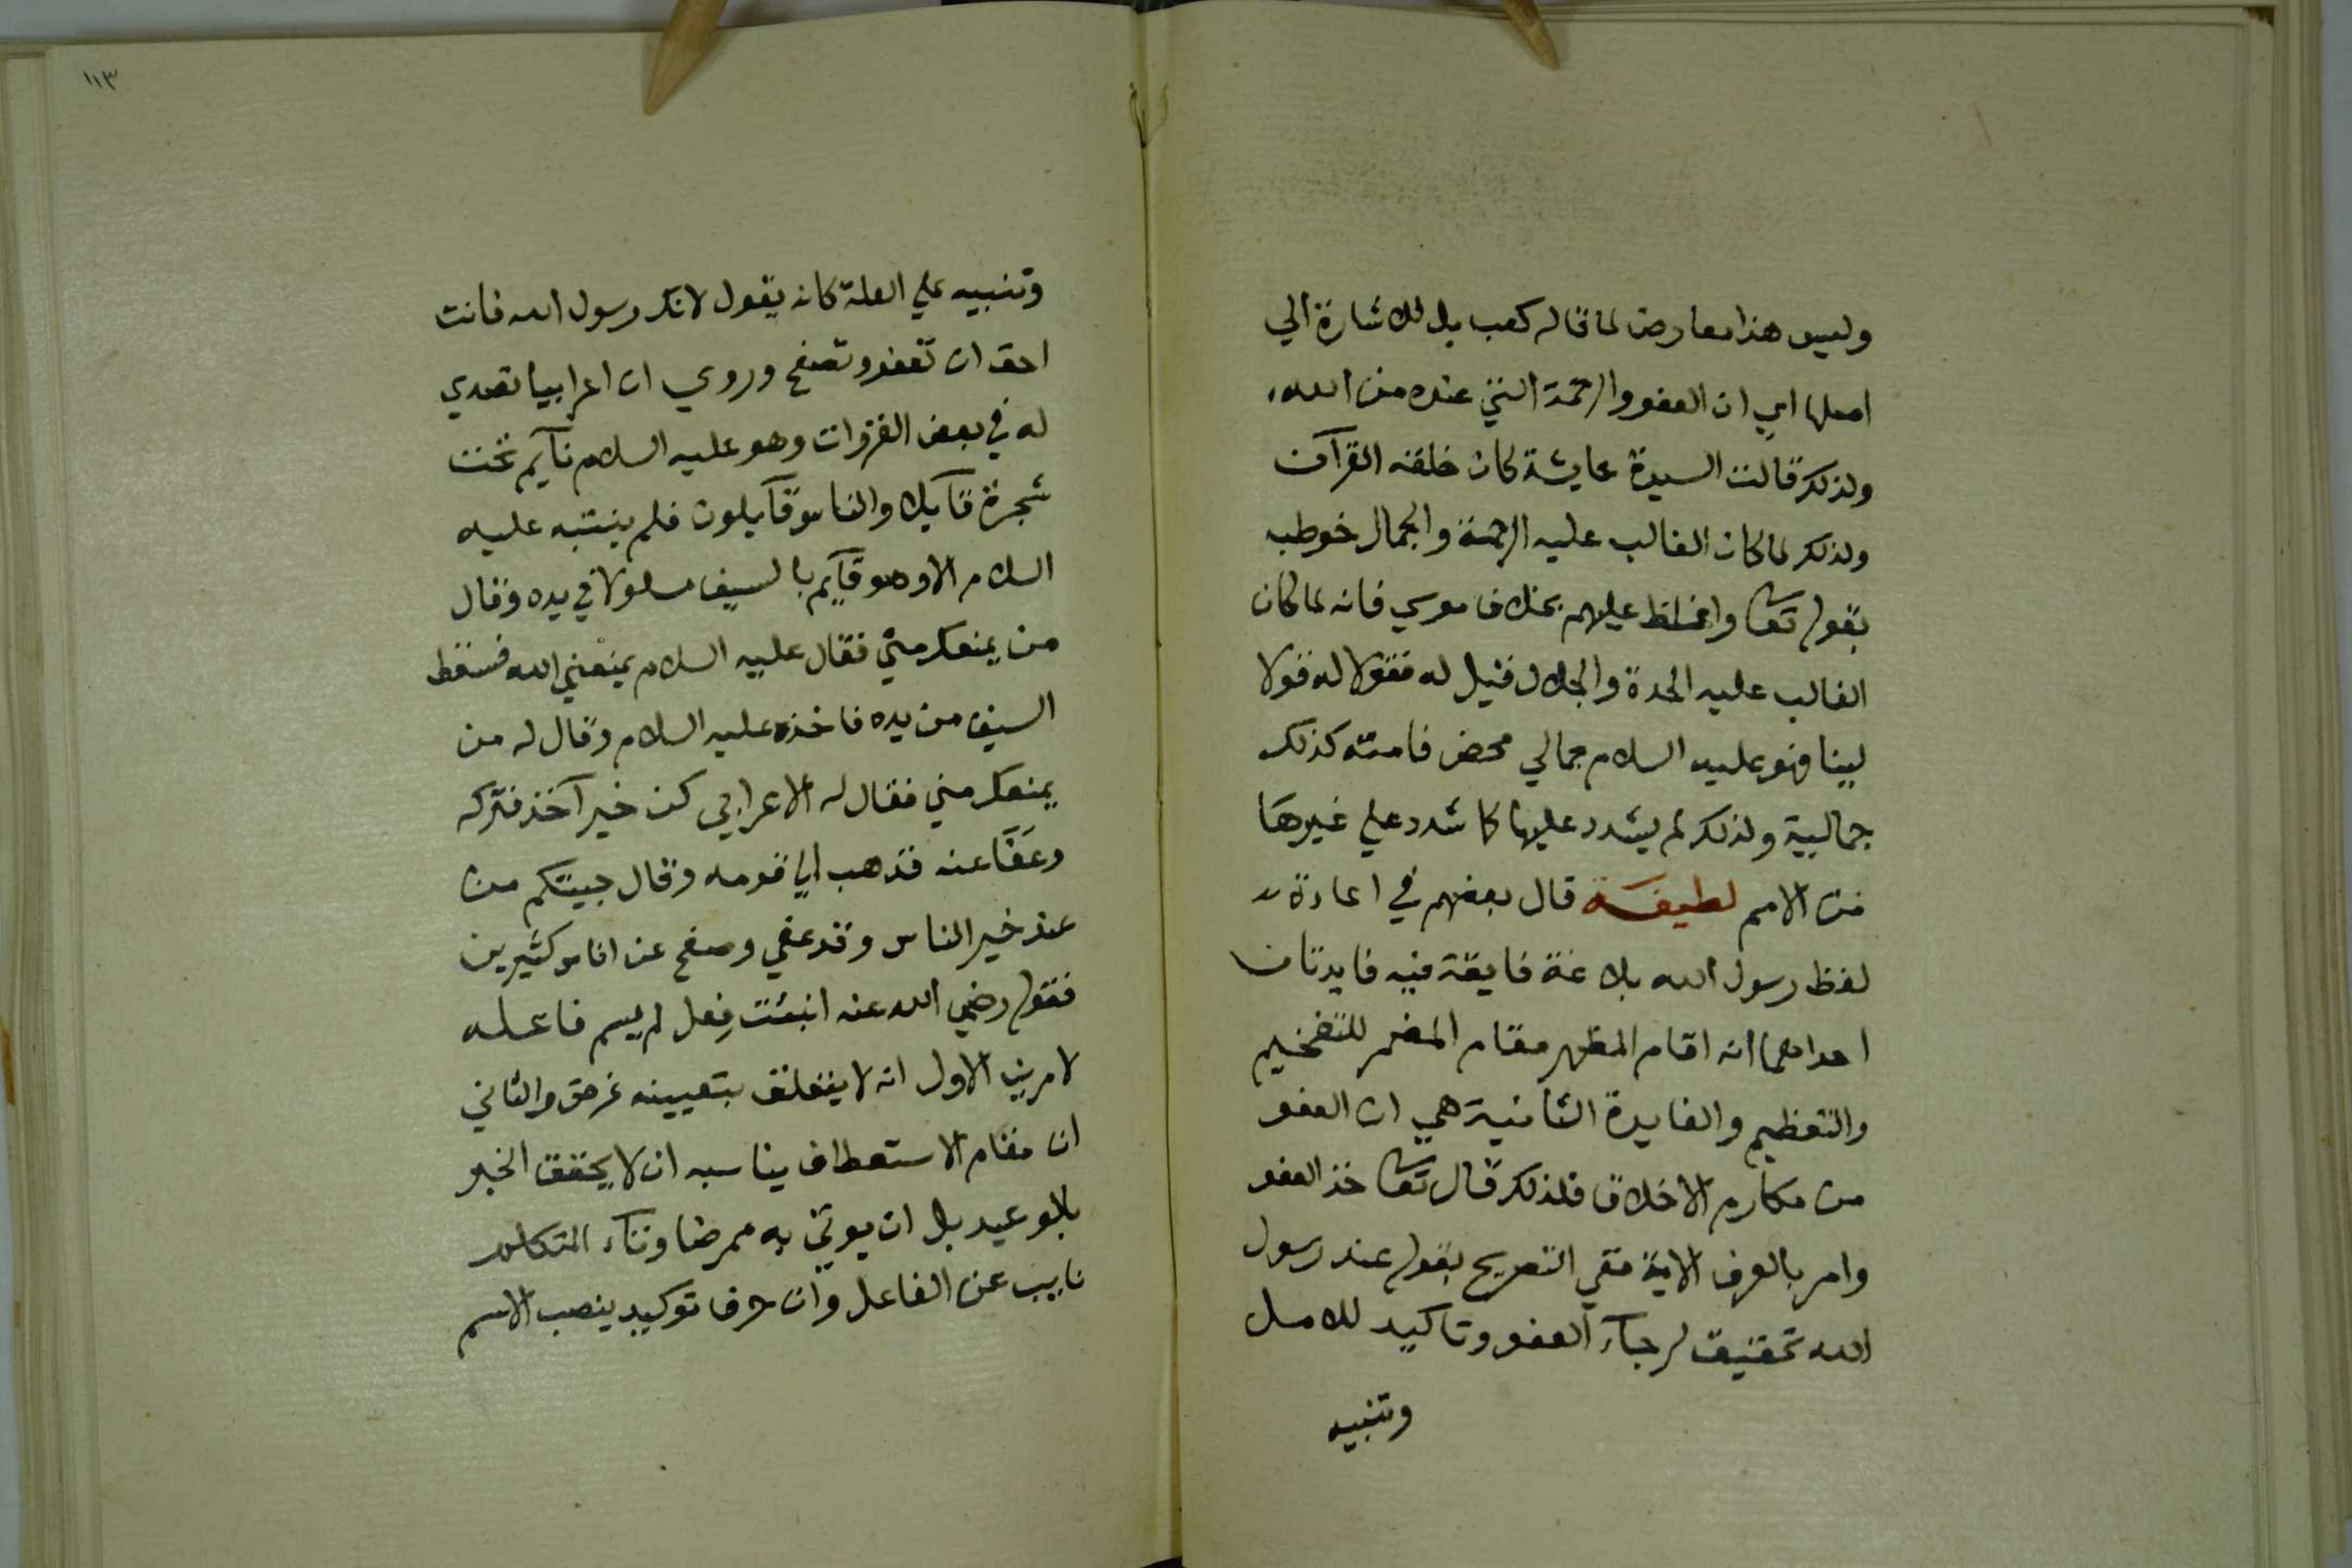 وليس هذا معارض لما قاله كعب بل للاشارة الي
اصلها اي ان العفو والرحمة التي عنده من الله
ولذلك قالت السيدة عايشة كان خلقه القرآن
ولذلك لما كان الغالب عليه الرحمة والجمال خوطب
بقوله تعا واغلظ عليهم بخلاف موسي فانه لما كان
الغالب عليه الحدة والجلال قيل له فقولا له قولا
لينا فهو عليه السلام جمالي محض فامته كذلك
جمالية ولذلك لم يشدد عليها كما شدد علي غيرها
من الامم لطيفة قال بعضهم في اعادة
لفظ رسول الله بلاغة فايقة فيه فايدتان
احداهما انه اقام المظهر مقام المضمر للتفخيم
والتعظيم والفايدة الثانية هي ان العفو
من مكارم الاخلاق فلذلك قال تعا خذ العفو
وامر بالعرف الاية ففي التصريح بقوله عند رسول
الله تحقيق لرجآء العفو وتاكيد للامل
وتنبيه
١١٣
وتنبيه علي العلة كانه يقول لانك رسول الله فانت
احق ان تعفو وتصفح وروي ان اعرابيا تصدي
له في بعض الغزوات وهو عليه السلام نآيم تحت
شجرة قآيلا والناس قآيلون فلم ينتبه عليه
السلام الا وهو قآيم بالسيف مسلولا في يده وقال
من يمنعك مني فقال عليه السلام يمنعني الله فسقط
السيف من يده فاخذه عليه السلام وقال له من
يمنعك مني فقال له الاعرابي كن خير آخذ فتركه
وعفا عنه فذهب الي قومه وقال جيتكم من
عند خير الناس وقد عفي وصفح عن اناس كثيرين
فقوله رضي الله عنه انبئت فعل لم يسم فاعله
لامرين الاول انه لا يتعلق بتعيينه غرض والثاني
ان مقام الاستعطاف يناسبه ان لا يحقق الخبر
بالوعيد بل ان يوتي به ممرضا وتآء المتكلم
نايب عن الفاعل وان حرف توكيد ينصب الاسم